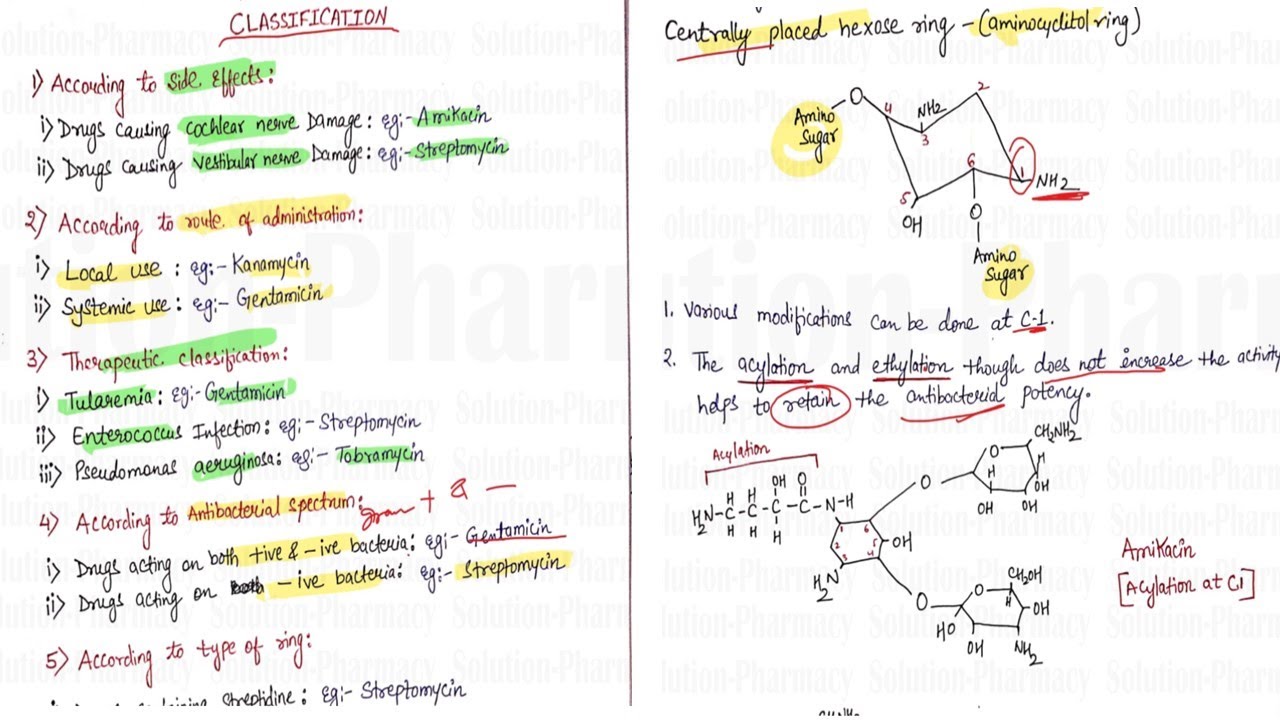 CLASSIFICATION
1) According to side effects:
i) Drugs causing cochlear nerve Damage: eg:- Amikacin
ii) Drugs causing Vestibular nerve Damage: eg:- Streptomycin
2) According to route of administration:
i) Local use : eg:- Kanamycin
ii) Systemic use : eg:- Gentamicin
3) Therapeutic classification:
i) Tularemia: eg:- Gentamicin
ii) Enterococcus Infection: eg:- Streptomycin
iii) Pseudomonas aeruginosa: eg:- Tobramycin
4) According to Antibacterial spectrum: gram + & -
i) Drugs acting on both +ive & -ive bacteria: eg:- Gentamicin
ii) Drugs acting on -ive bacteria: eg:- Streptomycin
5) According to type of ring:
streptidine: eg:- Streptomycin
Centrally placed hexose ring - (aminocyclitol ring)
Amino Sugar
O
4
NH2
3
2
6
1
NH2
5
OH
O
Amino
Sugar
1. Various modifications can be done at C-1.
2. The acylation and ethylation though does not increase the activity
helps to retain the antibacterial potency.
Acylation
H H OH O
H2N-C-C-C-C-N-H
H H H
2 3 4 5 6
OH
H2N
O
O
CH2NH2
H
OH
OH
OH
O
O
CH2OH
H
OH
NH2
OH
HO
Amikacin
[Acylation at C1]
Solution-Pharmacy